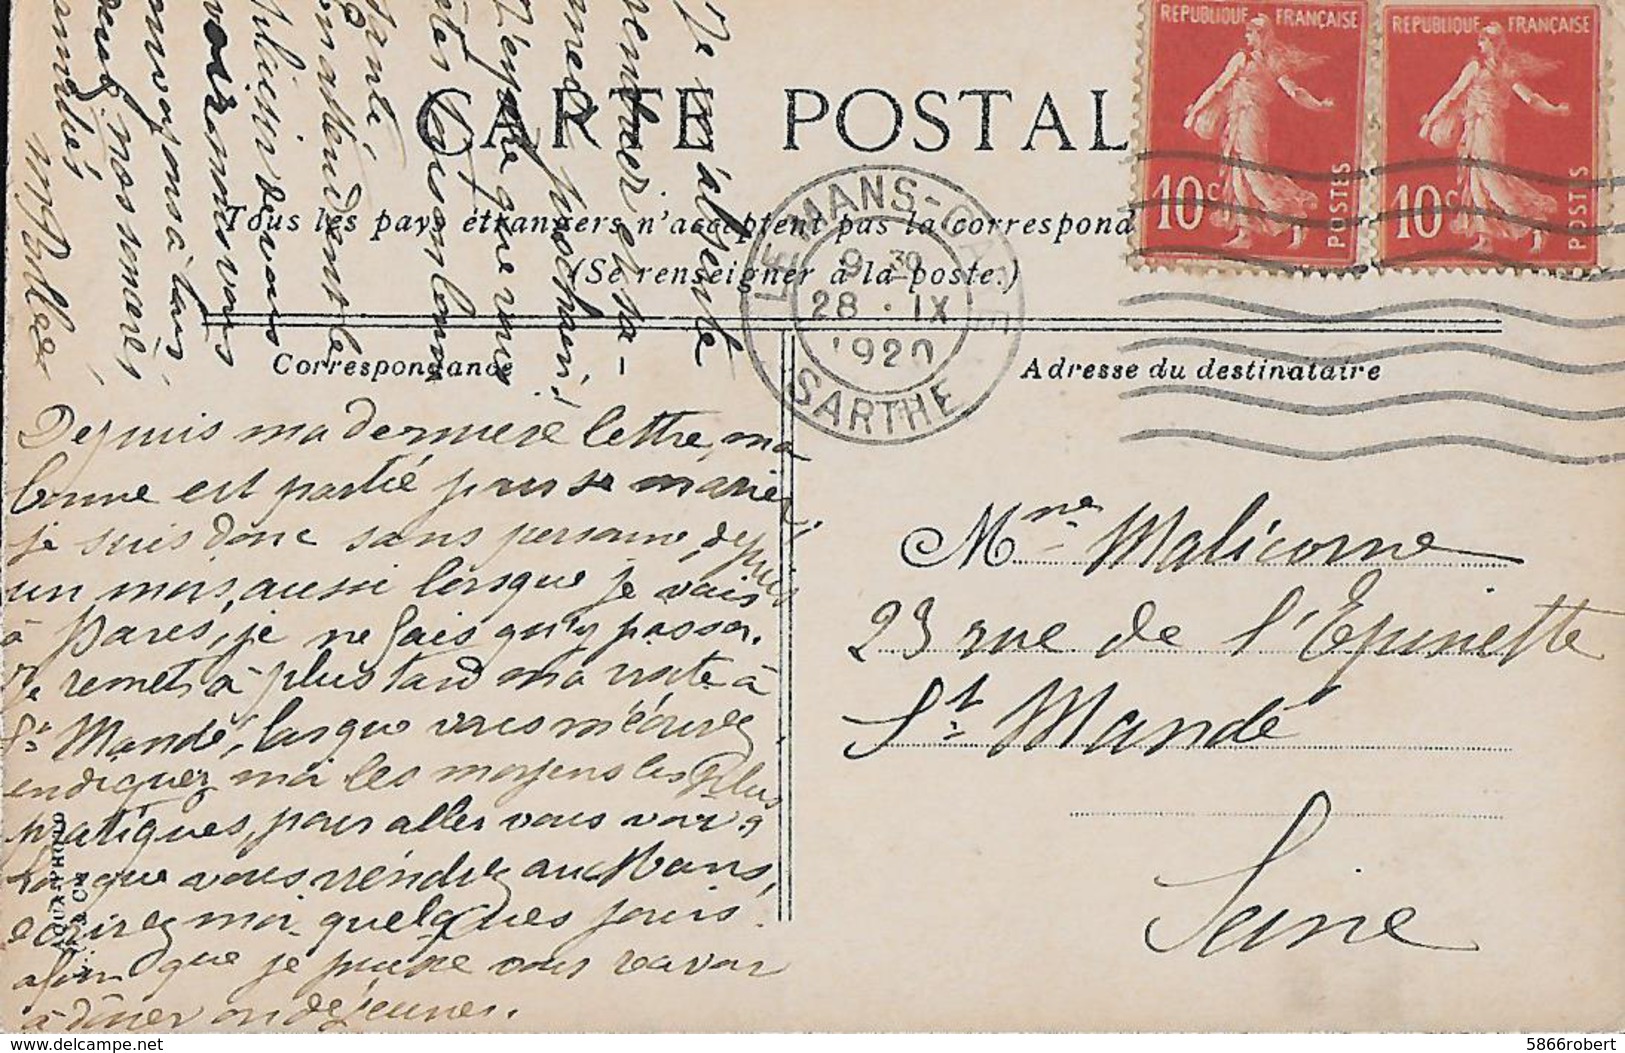 REPUBLIQUE FRANÇAISE
10c
POSTES
REPUBLIQUE FRANÇAISE
10c
POSTES
CARTE POSTAL
Tous les pays étrangers n'acceptent pas la correspond
(Se renseigner à la poste.)
LE MANS-GARE
9 30
28 · IX
1920
SARTHE
Correspondance
Adresse du destinataire
Depuis ma dernière lettre, ma
bonne est partie pour se marier,
je suis donc sans personne, depuis
un mois, aussi lorsque je vais
à Paris, je ne fais qu'y passer.
Je remets à plus tard ma visite à
St Mandé, lorsque vous m'écrirez,
indiquez moi les moyens les plus
pratiques, pour aller vous voir.
Lorsque vous viendrez au Mans,
écrivez moi quelques jours
afin que je puisse vous recevoir
à dîner ou déjeuner.
Je m'absente
l'espère que vous
êtes tous en bonne
santé
en attendant le
plaisir de vous
voir, nous vous
envoyons à tous
deux, nos sincères
amitiés
Mme Malicorne
23 rue de l'Epinette
St Mandé
Seine
AQUA-PHOTO
www.delcampe.net
5866robert